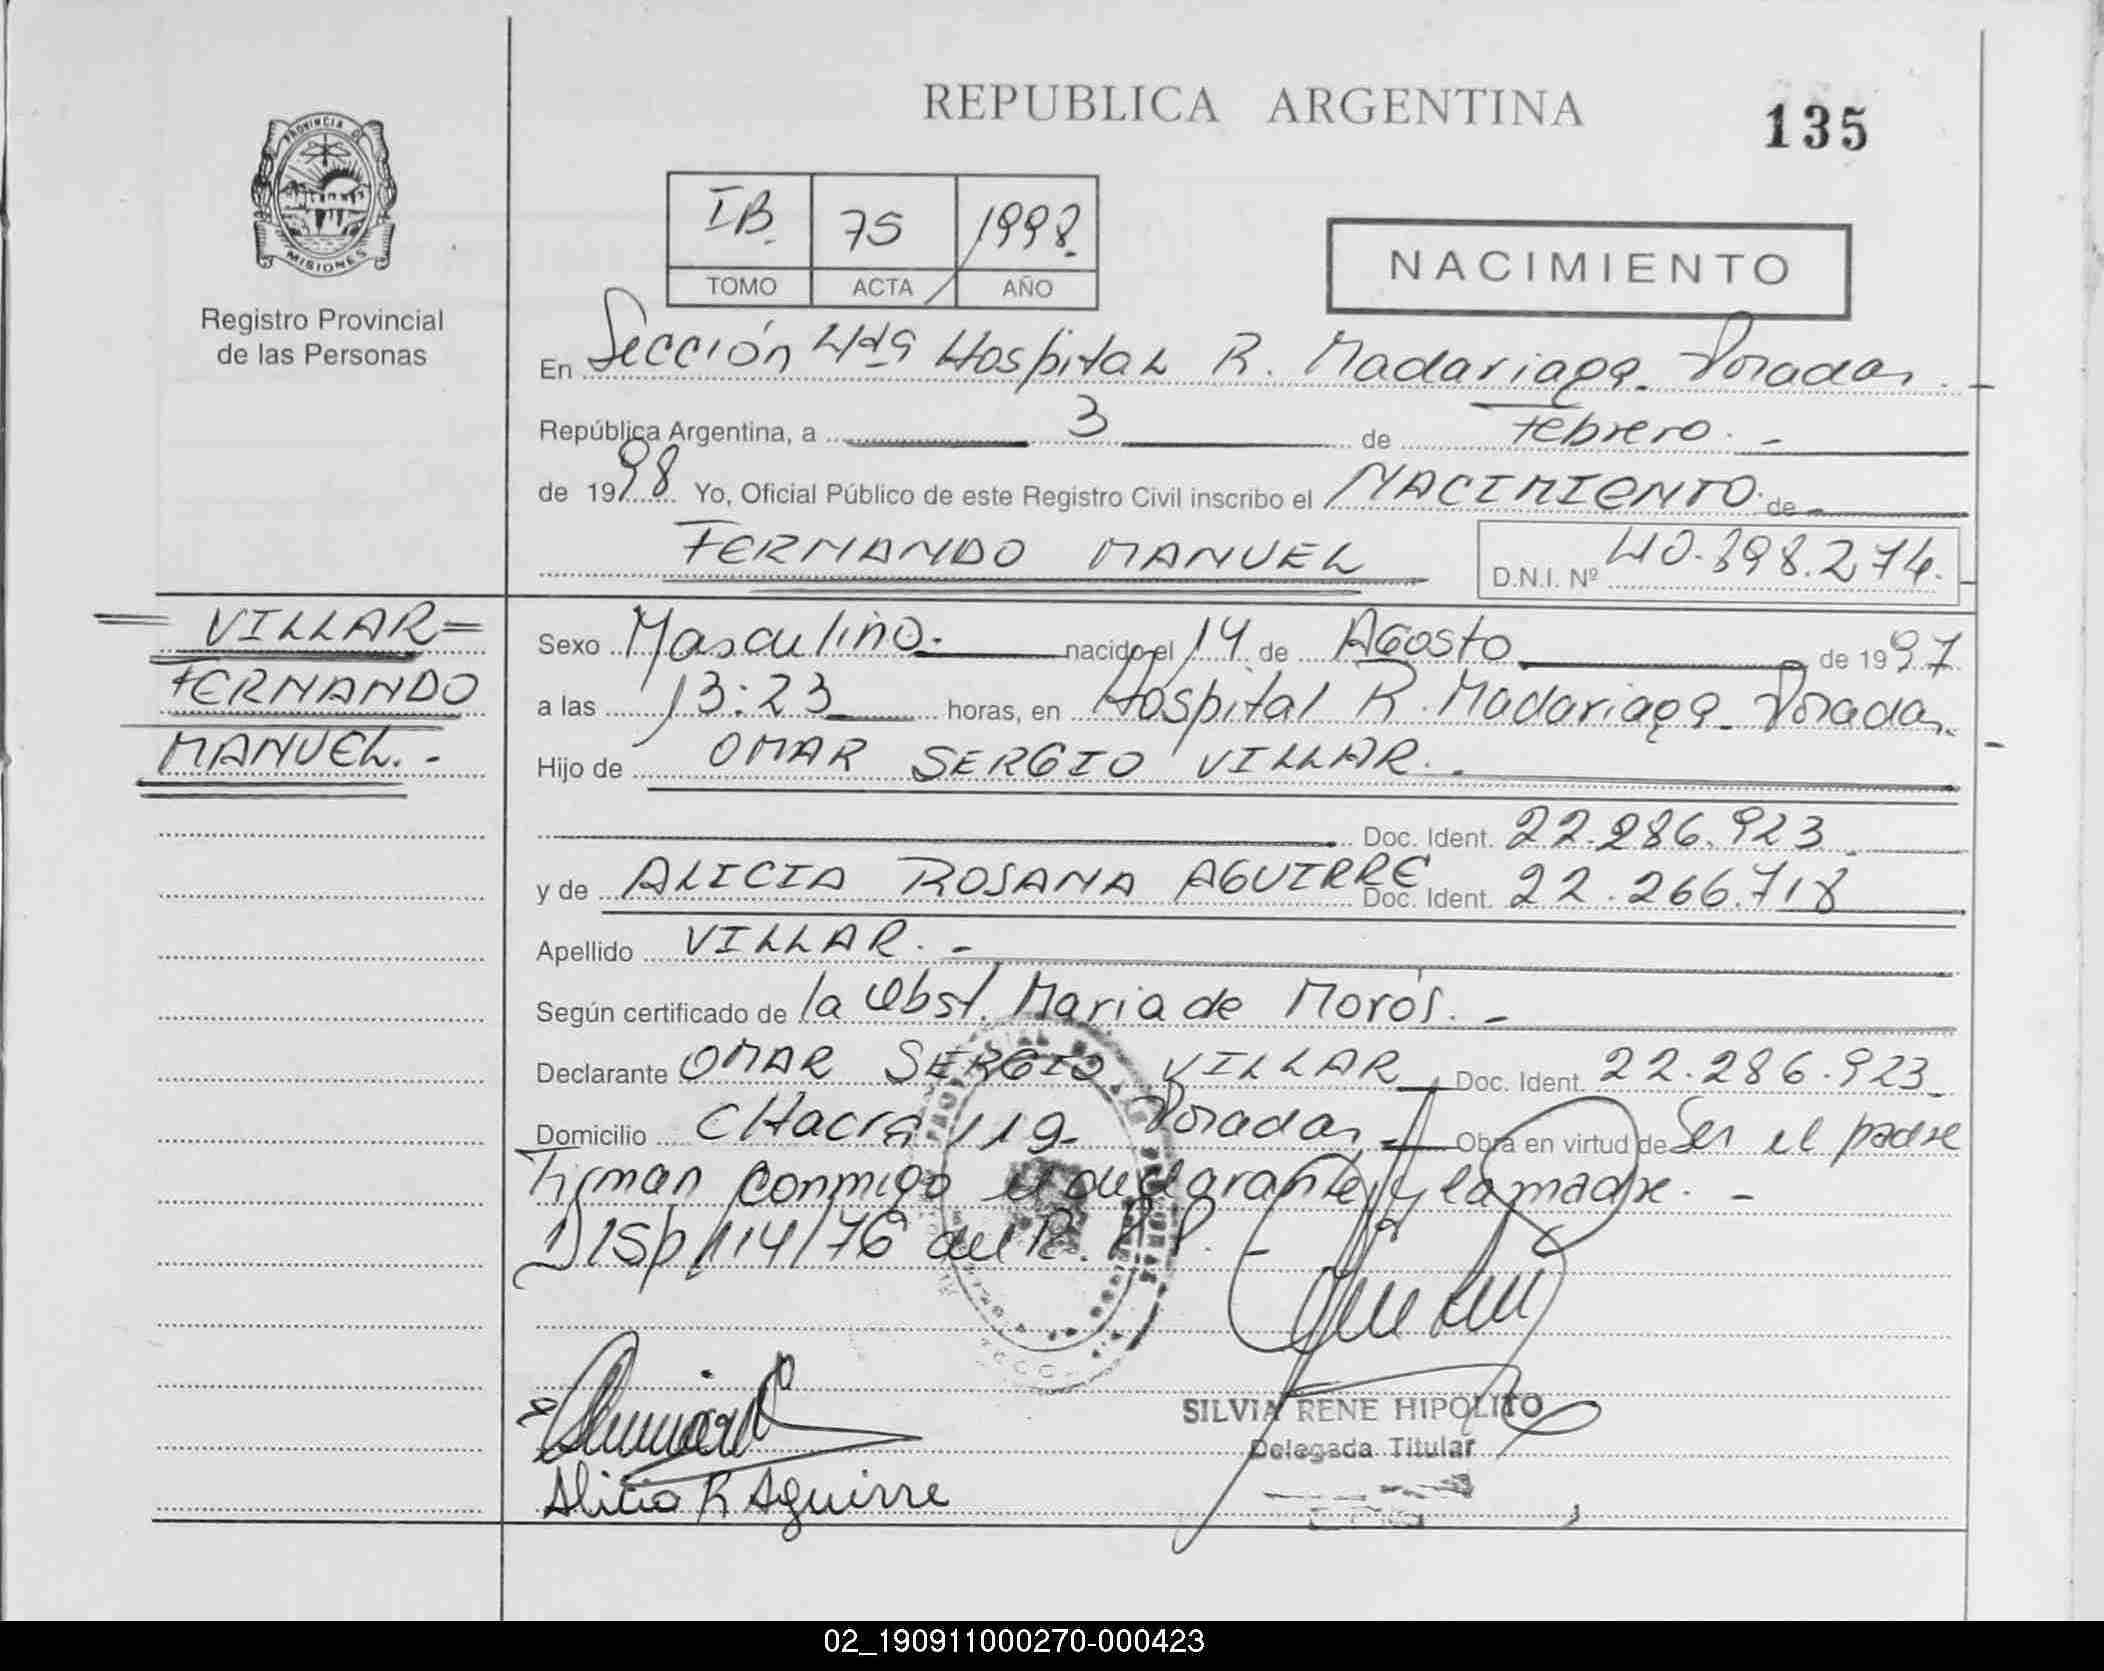 REPUBLICA ARGENTINA
135
PROVINCIA DE
MISIONES
Registro Provincial
de las Personas
IB. 75 1998.
TOMO ACTA AÑO
NACIMIENTO
En Sección 4ta Hospital R. Madariaga. Posadas.
República Argentina, a 3 de Febrero. -
de 1998. Yo, Oficial Público de este Registro Civil inscribo el NACIMIENTO. de
FERNANDO MANUEL D.N.I. Nº 40.398.274.
= VILLAR =
FERNANDO
MANUEL. -
Sexo Masculino. nacido el 14 de Agosto de 1997
a las 13:23 horas, en Hospital R. Madariaga. Posadas.
Hijo de OMAR SERGIO VILLAR. .
Doc. Ident. 22.286.923
y de ALICIA ROSANA AGUIRRE Doc. Ident. 22.266.718
Apellido VILLAR. -
Según certificado de la Obst. Maria de Moros. -
Declarante OMAR SERGIO VILLAR Doc. Ident. 22.286.923
Domicilio CHacra 119. Posadas, Obra en virtud de Ser el padre
Firman conmigo el declarante y la madre. -
Disp 114/76 del R. P. P. -
SILVIA RENE HIPOLITO
Delegada Titular
Alicia R Aguirre
02_190911000270-000423